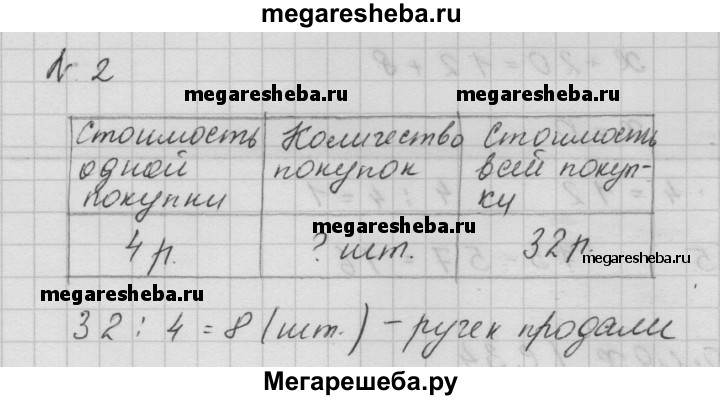 megaresheba.ru
№ 2
megaresheba.ru megaresheba.ru
Стоимость одной покупки
Количество покупок
Стоимость всей покуп-
ку
4 р. ? шт. 32 р.
megaresheba.ru
megaresheba.ru
megaresheba.ru
32 : 4 = 8 (шт.) – ручек продали
Мегарешеба.ру